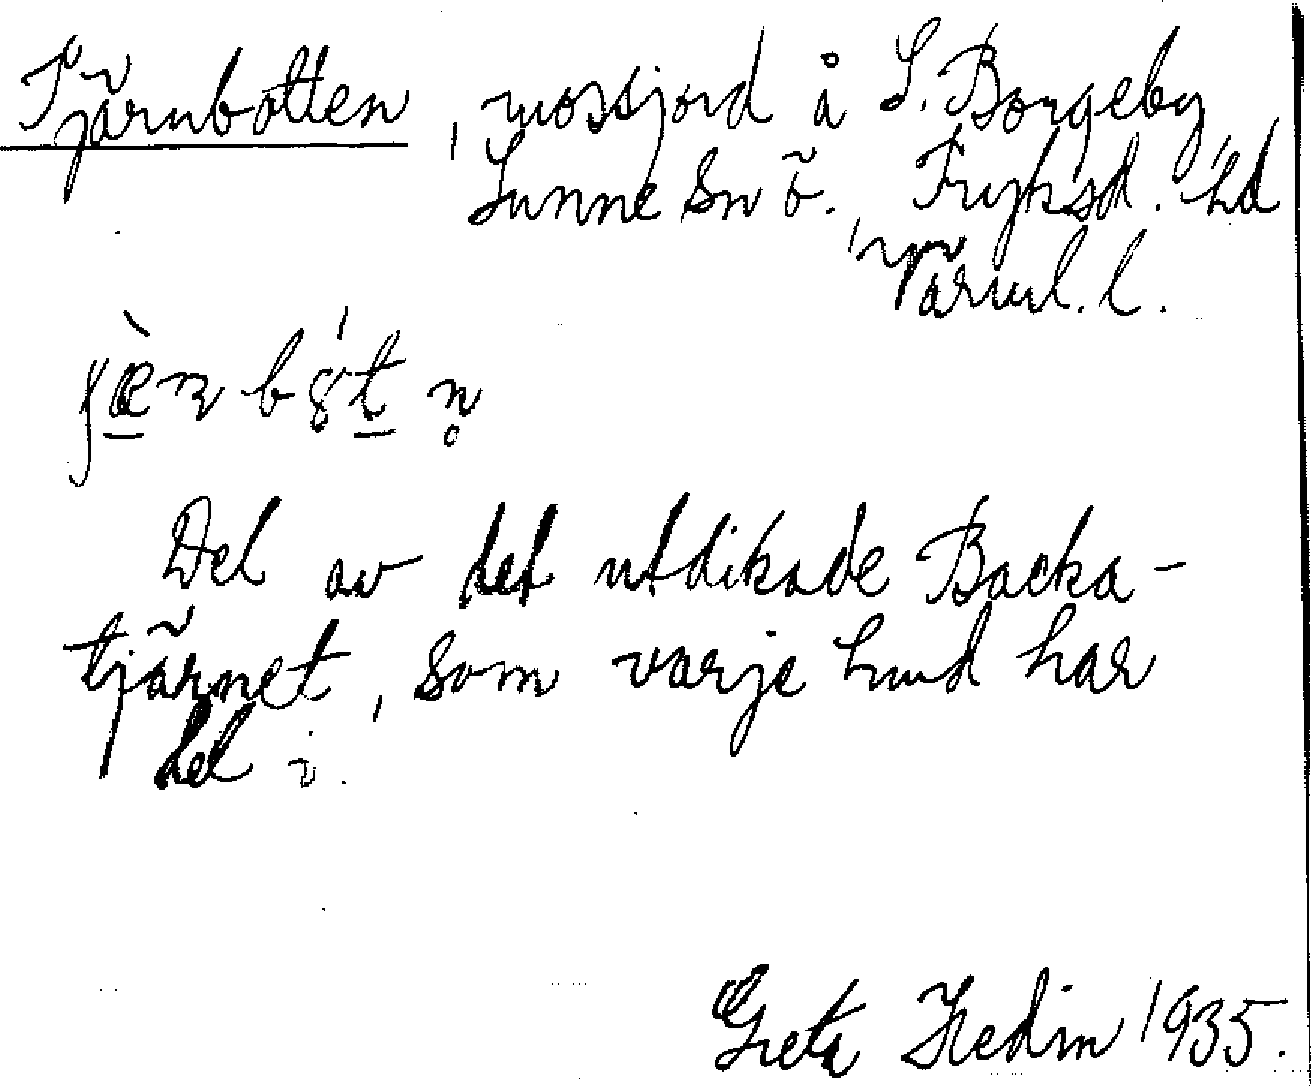 Tjärnbotten, mossjord å S. Borgeby
Sunne sn ö., Fryksd. hd
Värml. l.
Del av det utdikade Backa-
tjärnet, som varje hmd har
del i.
Greta Hedin 1935.